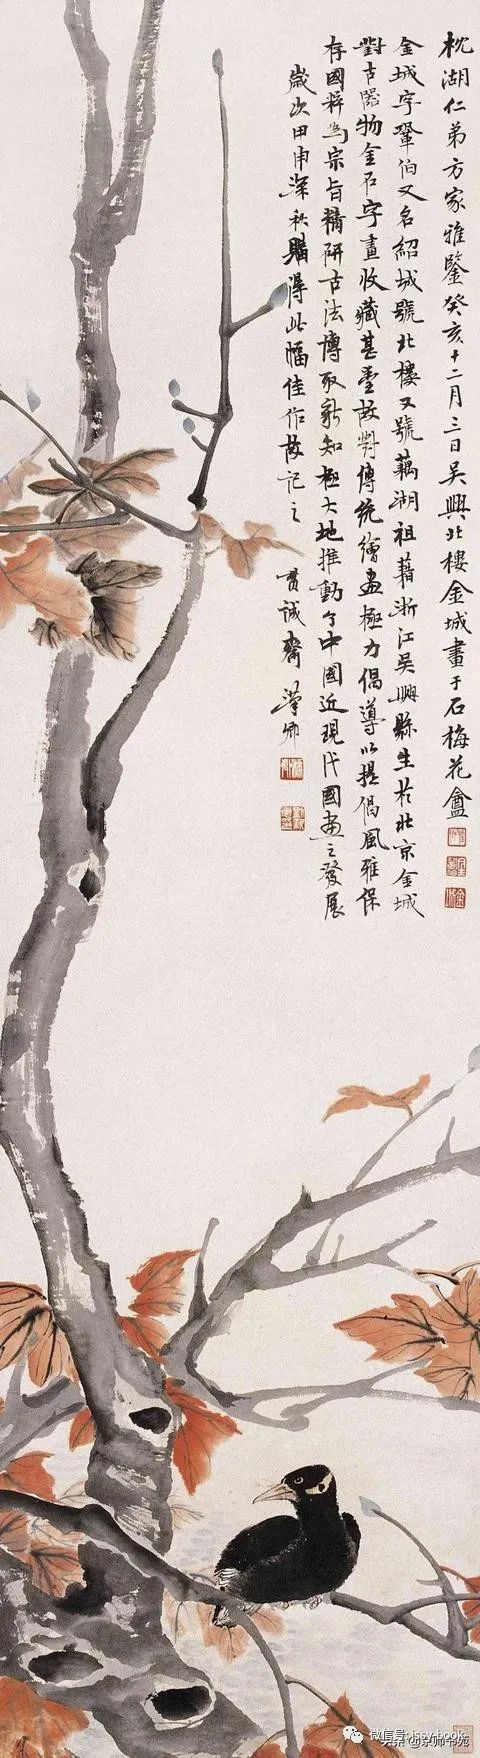 枕湖仁弟方家雅鑒癸亥十二月三日吳興北樓金城畫于石梅花盦
金城字鞏伯又名紹城號北樓又號藕湖祖藉浙江吳興縣生於北京金城
對古器物金石字畫收藏甚豐故對傳統繪畫極力倡導以提倡風雅保
存國粹為宗旨精研古法博取新知極大地推動了中國近現代國畫之發展
歲次甲申深秋購得此幅佳作故記之
誠齋
微信号: jssy-book
头条 @京师书苑